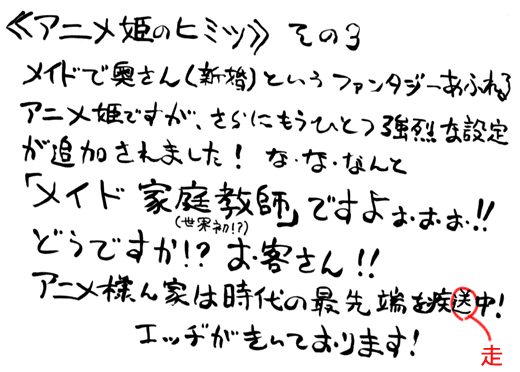 ≪アニメ姫のヒミツ≫ その3
メイドで奥さん(新婚)というファンタジーあふれる
アニメ姫ですが、さらにもうひとつ強烈な設定
が追加されました! な・な・なんと
「メイド家庭教師」ですよぉぉぉ!!
(世界初!?)
どうですか!? お客さん!!
アニメ様ん家は時代の最先端を疾送中!
走
エッヂがきいております!